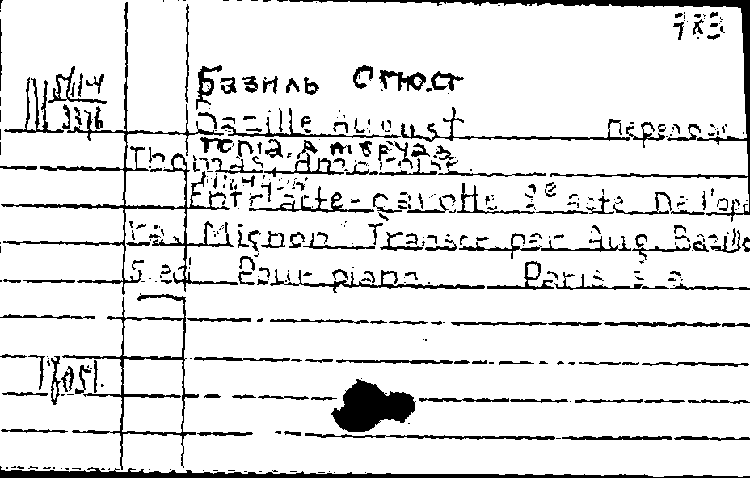 783
Ш 5/11-4
3376
Базиль Огюст
Bazille August перелож.
Тома, Амбруаз
Thomas, Ambroise.
Миньон
Entr'acte-gavotte 2e acte de l'opé
ra. Mignon Transcr. par Aug. Bazille
5 ed Pour piano. Paris s a
18051.